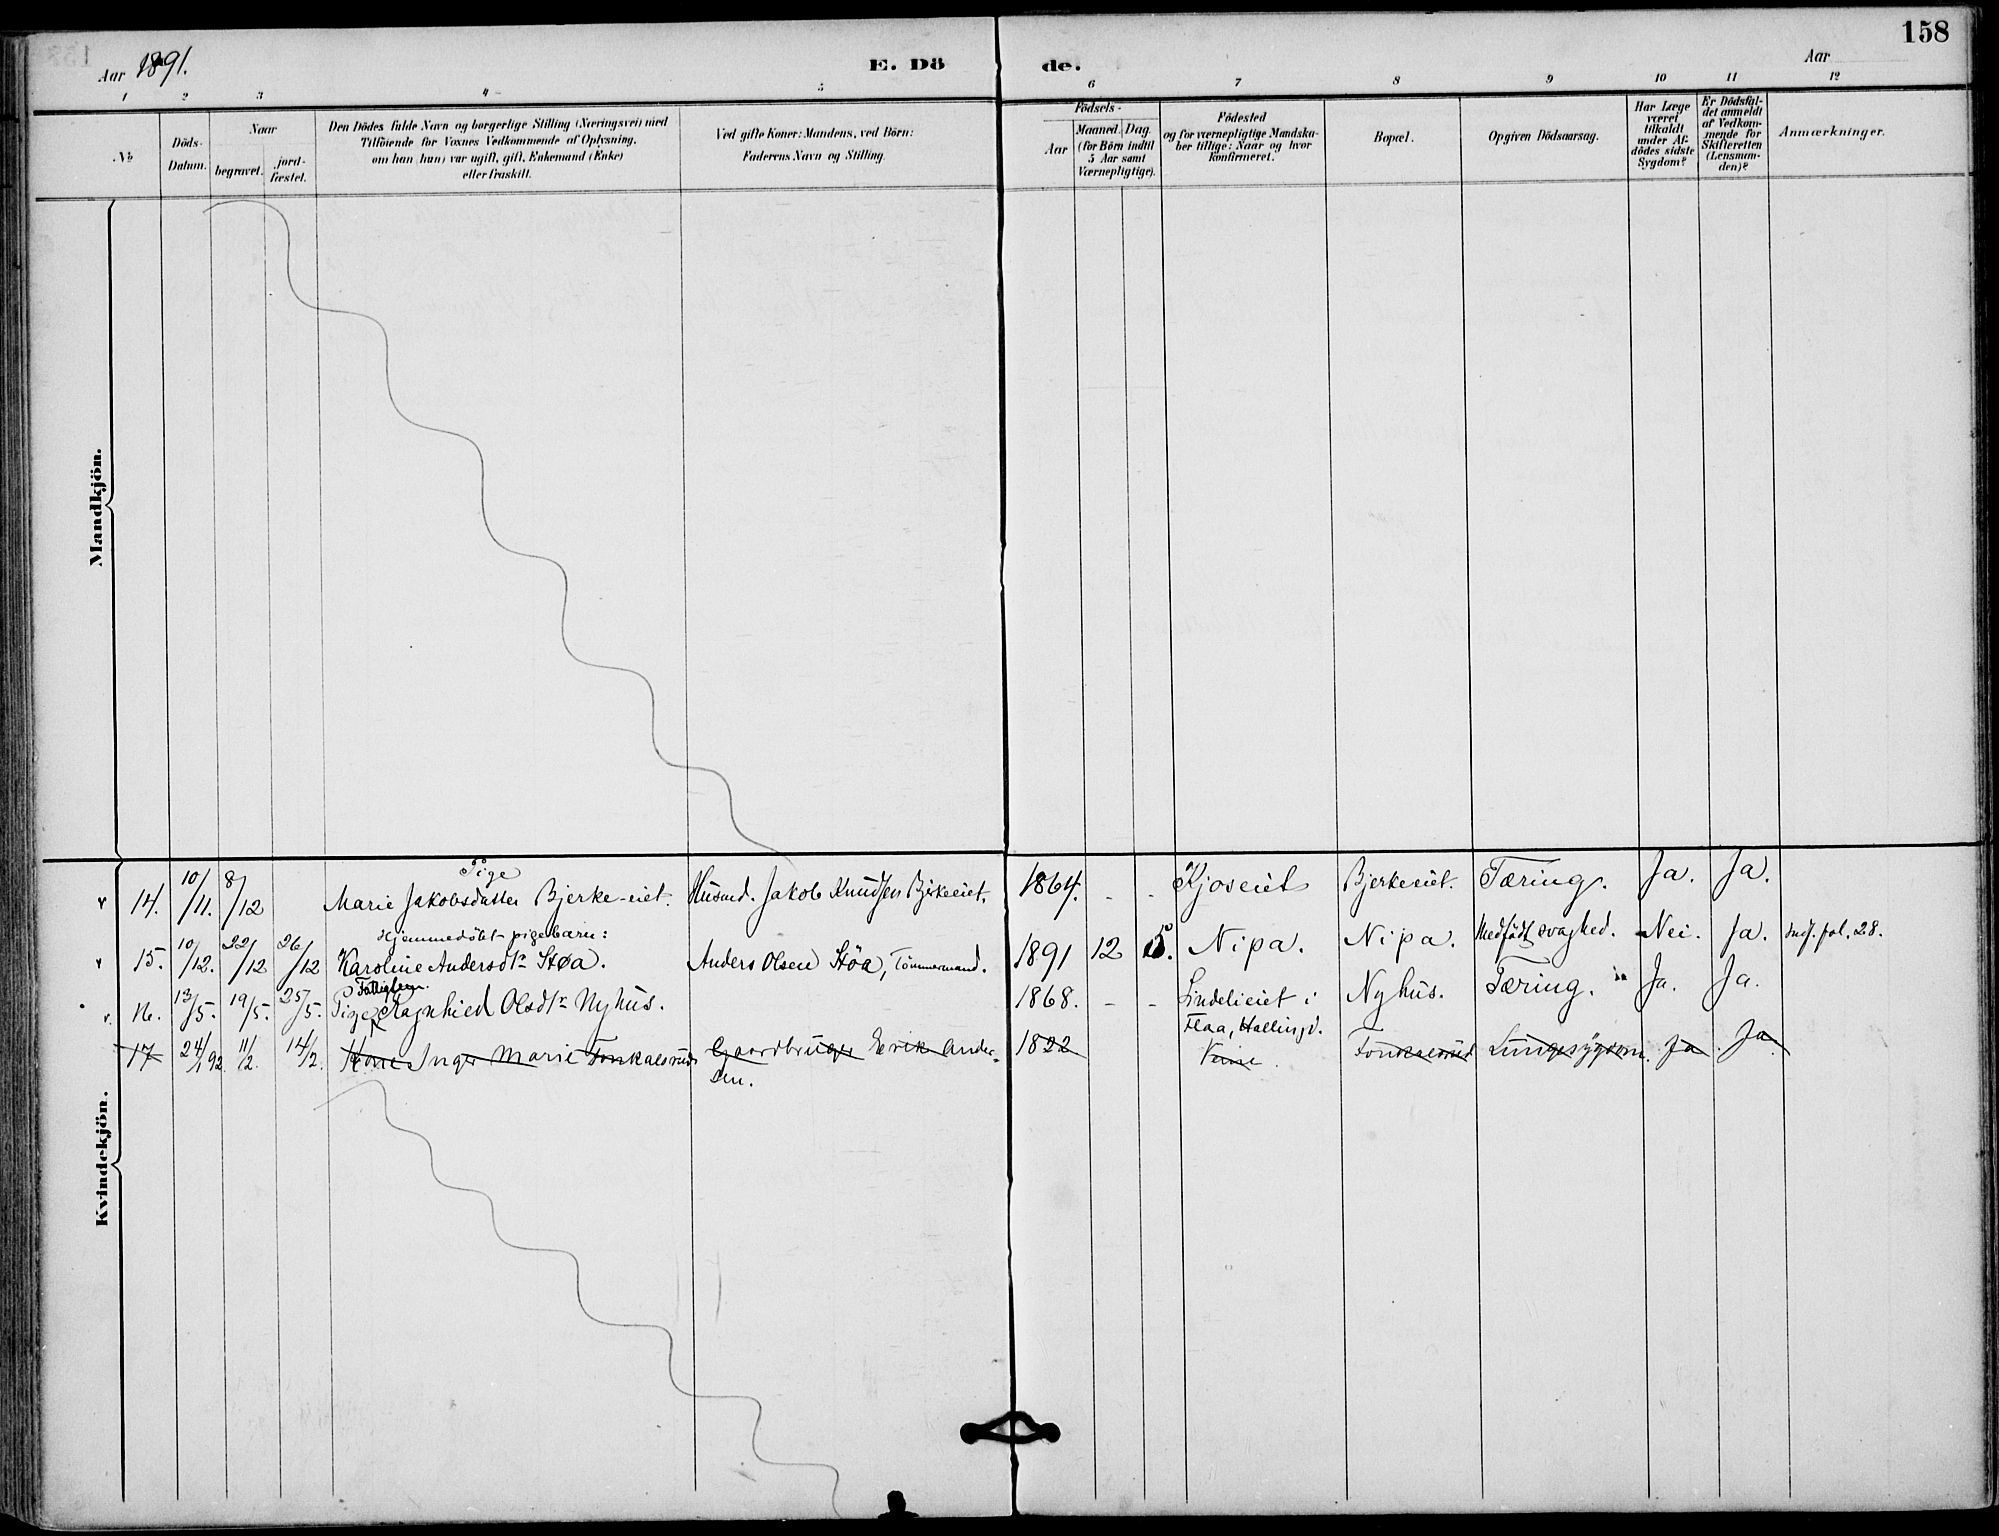 158
Aar 1891.
E. Dö de.
Aar
1 2 3 4 5 6 7 8 9 10 11 12
No
Döds-
Datum.
Naar
begravet.
jord-
fæstet.
Den Dödes fulde Navn og borgerlige Stilling (Næringsvei) med
Tilföiende for Voxnes Vedkommende af Oplysning,
om han (hun) var ugift, gift, Enkemand (Enke)
eller fraskilt.
Ved gifte Koner: Mandens, ved Börn:
Faderens Navn og Stilling.
Födsels-
Aar
Maaned. Dag.
(for Börn indtil
5 Aar samt
Værnepligtige).
Födested
og for værnepligtige Mandska-
ber tillige: Naar og hvor
konfirmeret.
Bopæl.
Opgiven Dödsaarsag.
Har Læge
været
tilkaldt
under Af-
dödes sidste
Sygdom?
Er Dödsfal-
det anmeldt
af Vedkom-
mende for
Skifteretten
(Lensman-
den)?
Anmærkninger.
Mandkjön.
Pige
14. 10/11. 8/12 Marie Jakobsdatter Bjerke-eiet. Husmd. Jakob Knudsen Bjerkeeiet. 1864. - - Kjoseiet Bjerkeeiet. Tæring. Ja. Ja.
Hjemmedøbt pigebarn:
15. 10/12. 22/12 26/12 Karoline Andersdtr Støa. Anders Olsen Støa, Tömmermand. 1891 12 5. Nipa. Nipa. Medfödt svaghed. Nei. Ja. fol. 28.
Fattiglem.
16. 13/5. 19/5. 25/5. Pige Ragnhied Olsdtr Nyhus. 1868. - - Lindelieiet i Nyhus. Tæring. Ja. Ja.
Flaa, Hallingd.
17 24/1 92. 11/2. 14/2. Kone Inger Marie Fonkalsrud Gaardbruger Erik Ander- 1822 Fonkalsrud Lungesygdom. Ja. Ja.
sen.
Kvindekjön.